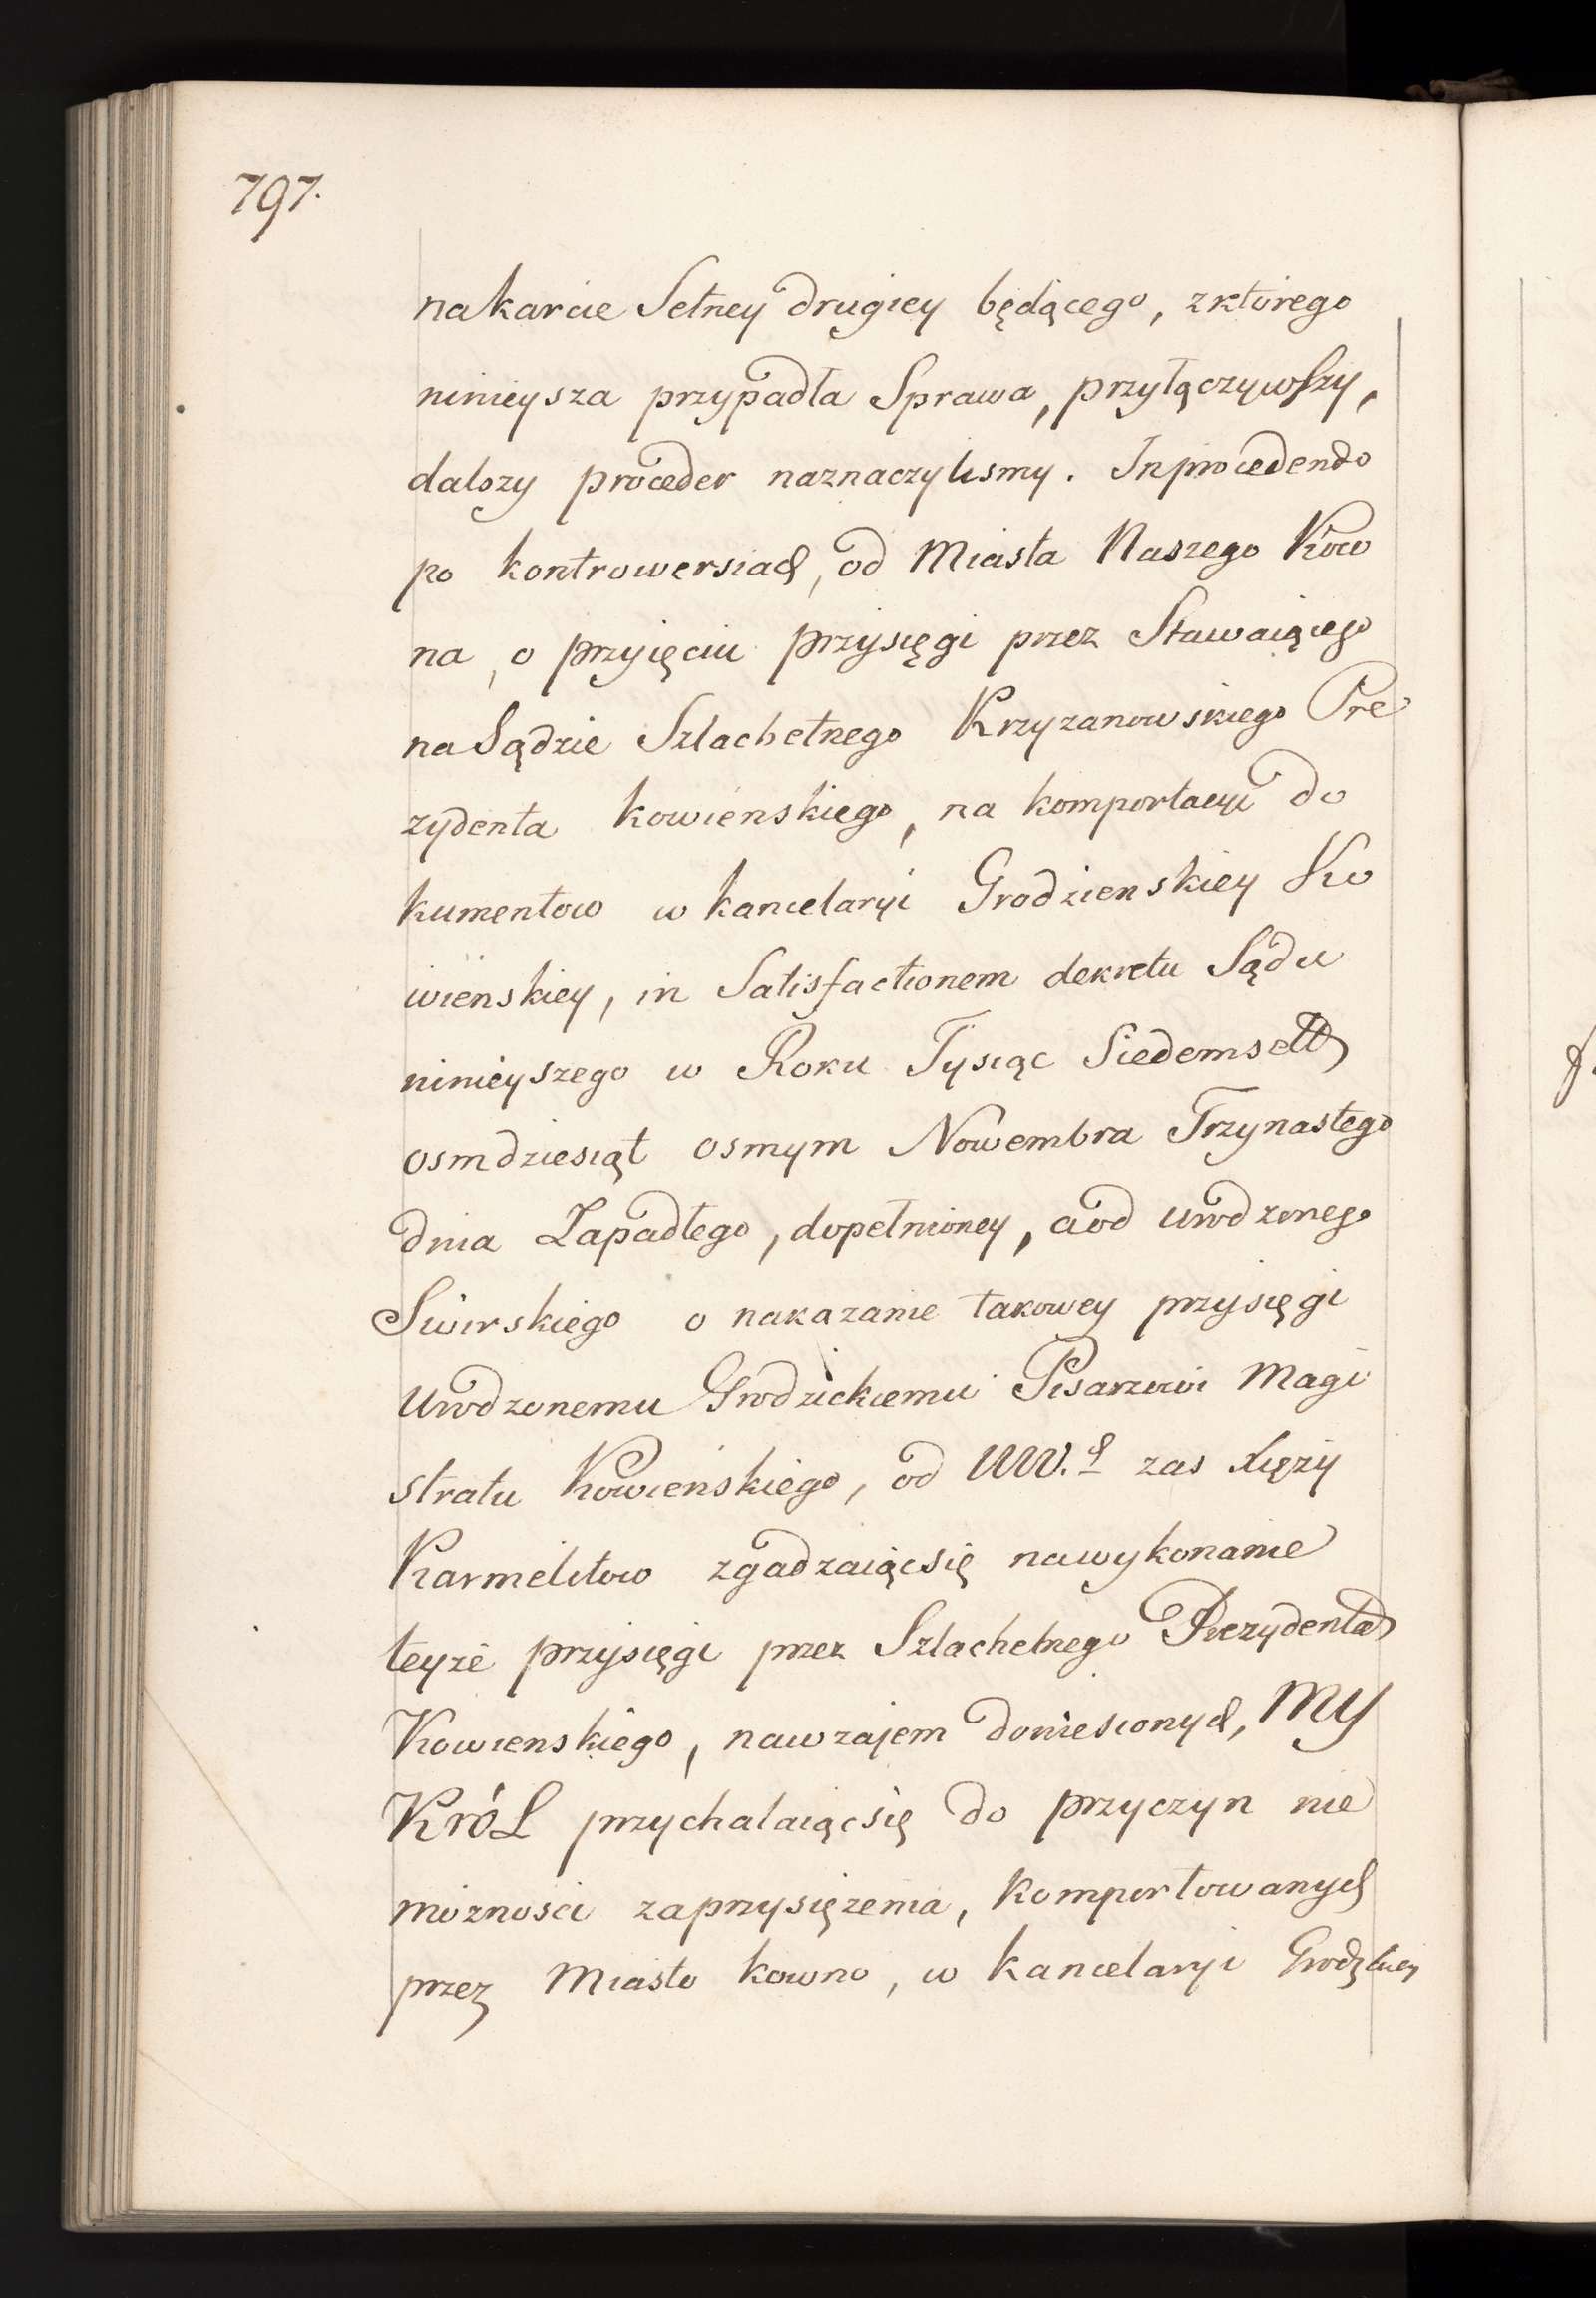 797.
na karcie Setney drugiey będącego, z którego
ninieysza przypadła Sprawa, przyłączywszy,
dalszy proceder naznaczylismy. In procedendo
po kontrowersiach, od Miasta Naszego Kow
na, o przyięciu przysięgi przez Stawaiącego
na Sądzie Szlachetnego Krzyzanowskiego Pre
zydenta kowienskiego, na komportacyi do
kumentow w kancelaryi Grodzienskiey Ko
wienskiey, in Satisfactionem dekretu Sądu
ninieyszego w Roku Tysiąc Siedemset
osmdziesiąt osmym Nowembra Trzynastego
dnia Zapadłego, dopełnioney, a od urodzonego
Siwirskiego o nakazanie takowey przysięgi
Urodzonemu Grodzickiemu Pisarzowi Magi
stratu Kowienskiego, od WW.ch zas Xięży
Karmelitow zgadzaiąc się na wykonanie
teyże przysięgi przez Szlachetnego Prezydenta
Kowienskiego, nawzajem doniesionych, MY
KróL przychalaiąc się do przyczyn nie
możnosci zaprzysiężenia, komportowanych
przez Miasto kowno, w kancelaryi Grodzkiey